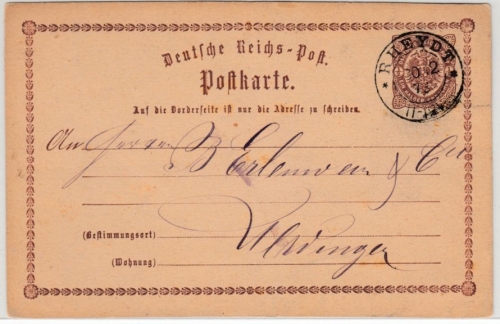 Deutsche Reichs-Post.
Postkarte.
Auf die Vorderseite ist nur die Adresse zu schreiben.
RHEYDT
11-12
An Herren B Erlenwein & Cie
(Bestimmungsort) Uerdingen
(Wohnung)